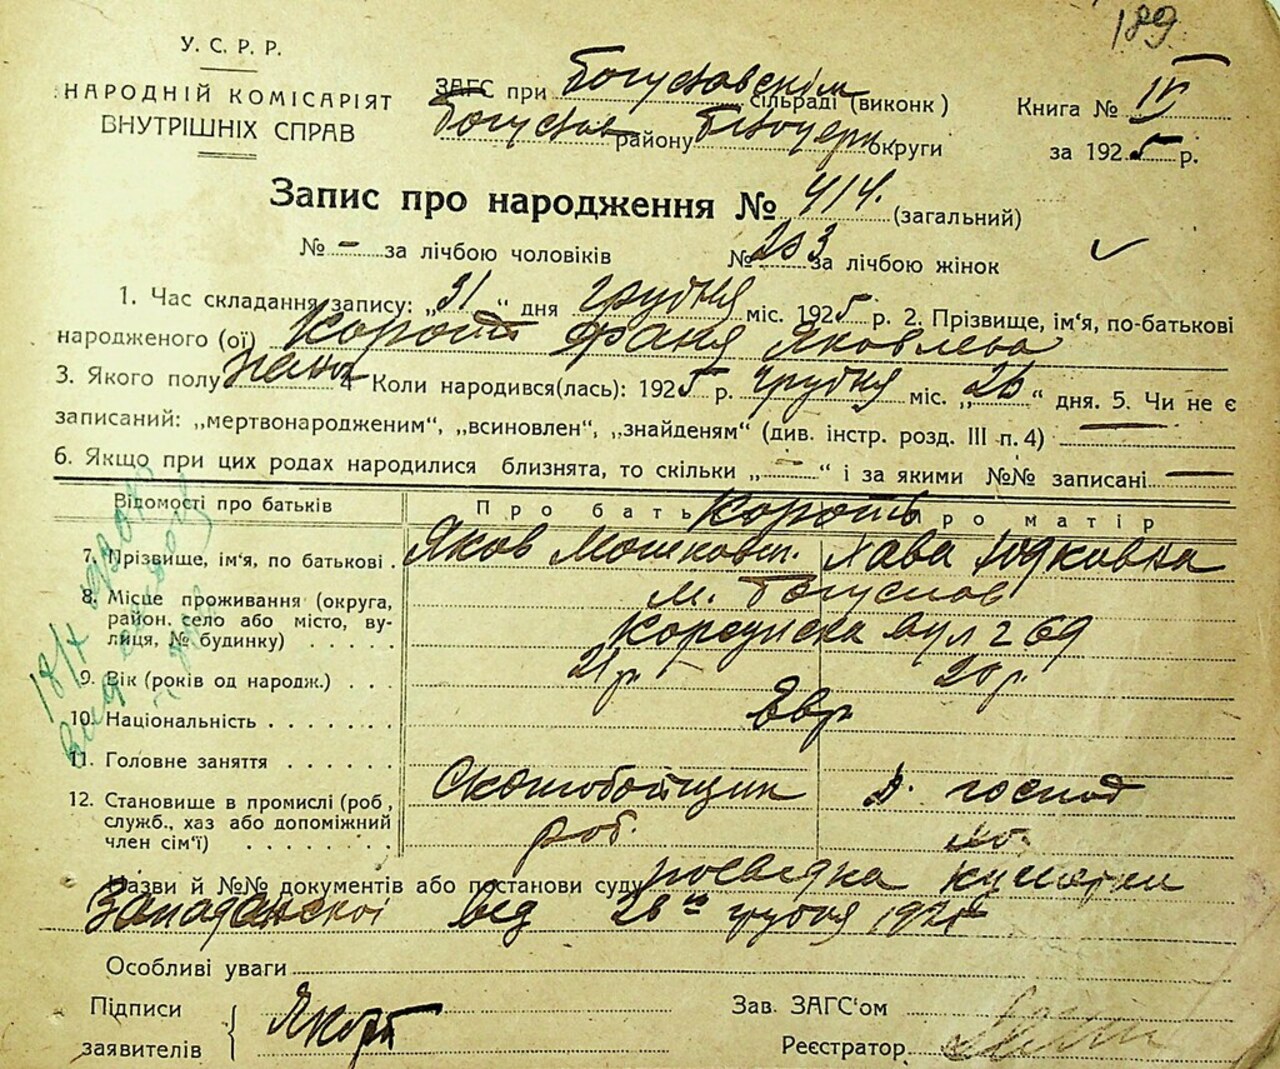 189
У. С. Р. Р.
НАРОДНІЙ КОМІСАРІЯТ
ВНУТРІШНІХ СПРАВ
ЗАГС при Богуславскім сільраді (виконк)
Богуслав району Білоцерк. округи
Книга № IV
за 1925 р.
Запис про народження № 414. (загальний)
№ – за лічбою чоловіків № 203 за лічбою жінок
1. Час складання запису: „31" дня грудня міс. 1925 р. 2. Прізвище, ім'я, по-батькові
народженого (ої) Корот Фаня Яковлева
3. Якого полу жено 4 Коли народився(лась): 1925 р. грудня міс. „26" дня. 5. Чи не є
записаний: „мертвонародженим", „всиновлен", „знайденям" (див. інстр. розд. III п. 4) —
6. Якщо при цих родах народилися близнята, то скільки „–" і за якими №№ записані —
Відомості про батьків Про бать Про матір
Короть
7. Прізвище, ім'я, по батькові . Яков Мошков. Хава Юдковна
8. Місце проживання (округа, район, село або місто, вулиця, № будинку) . . . . .
м. Богуслав
Корсунска вул 2 69
9. Вік (років од народж.) . . . 21 р. 20 р.
10. Національність . . . . . . . Евр.
11. Головне заняття . . . . . . Скотобойщик д. господ
12. Становище в промислі (роб, служб., хаз або допоміжний член сім'ї) . . . . . . . роб.
Назви й №№ документів або постанови суду посвідка
від 26го грудня 1925
Особливі уваги
Підписи
заявителів
ЯКорт
Зав. ЗАГС'ом
Реєстратор